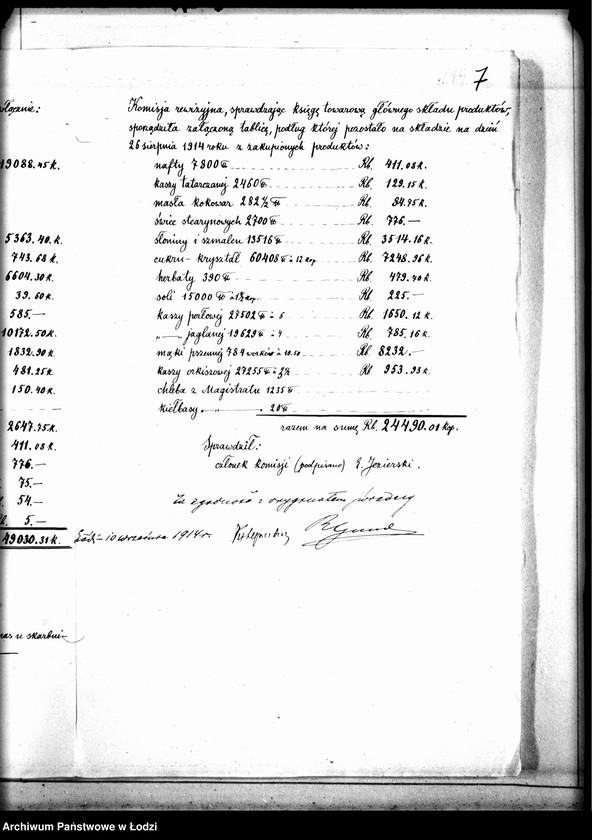 7
łącznie:
19088.45 k.
5363.40. k.
743.68 k.
6604.30 k.
39.60 k.
585.—
10172.50 k.
1832.90 k.
481.25 k.
150.40 k.
2647.75 k.
411.08 k.
776.—
75.—
54.—
5.—
49030.31 k.
nas u skarbni-
Komisja rewizyjna, sprawdzając księgę towarową głównego składu produktów,
sporządziła załączoną tablicę, podług której pozostało na składzie na dzień
26 sierpnia 1914 roku z zakupionych produktów:
nafty 7800 ℔ Rb. 411.08 k.
kaszy tatarczanej 2460 ℔ Rb. 129.15 k.
masła kokowar 282 1/2 ℔ Rb. 84.75 k.
świec stearynowych 2700 ℔ Rb. 776.—
słoniny i szmalcu 13516 ℔ Rb. 3514.16 k.
cukru - kryształ 60408 ℔ à 12 kop. Rb. 7248.96 k.
herbaty 390 ℔ Rb. 479.70 k.
soli 15000 ℔ à 1½ kop. Rb. 225.—
kaszy perłowej 27502 ℔ à 6 Rb. 1650.12 k.
—„— jaglanej 19629 ℔ à 4 Rb. 785.16 k.
mąki pszennej 784 worków à 10.50 Rb. 8232.—
kaszy orkiszowej 27255 ℔ à 3½ Rb. 953.93 k.
chleba z Magistratu 1235 ℔
kiełbasy „ —„— 20 ℔
razem na sumę Rb. 24490.01 kop.
Sprawdził:
członek komisji (podpisano) E. Jezierski.
Za zgodność z oryginałem
Łódź - 10 września 1914 r.
Archiwum Państwowe w Łodzi